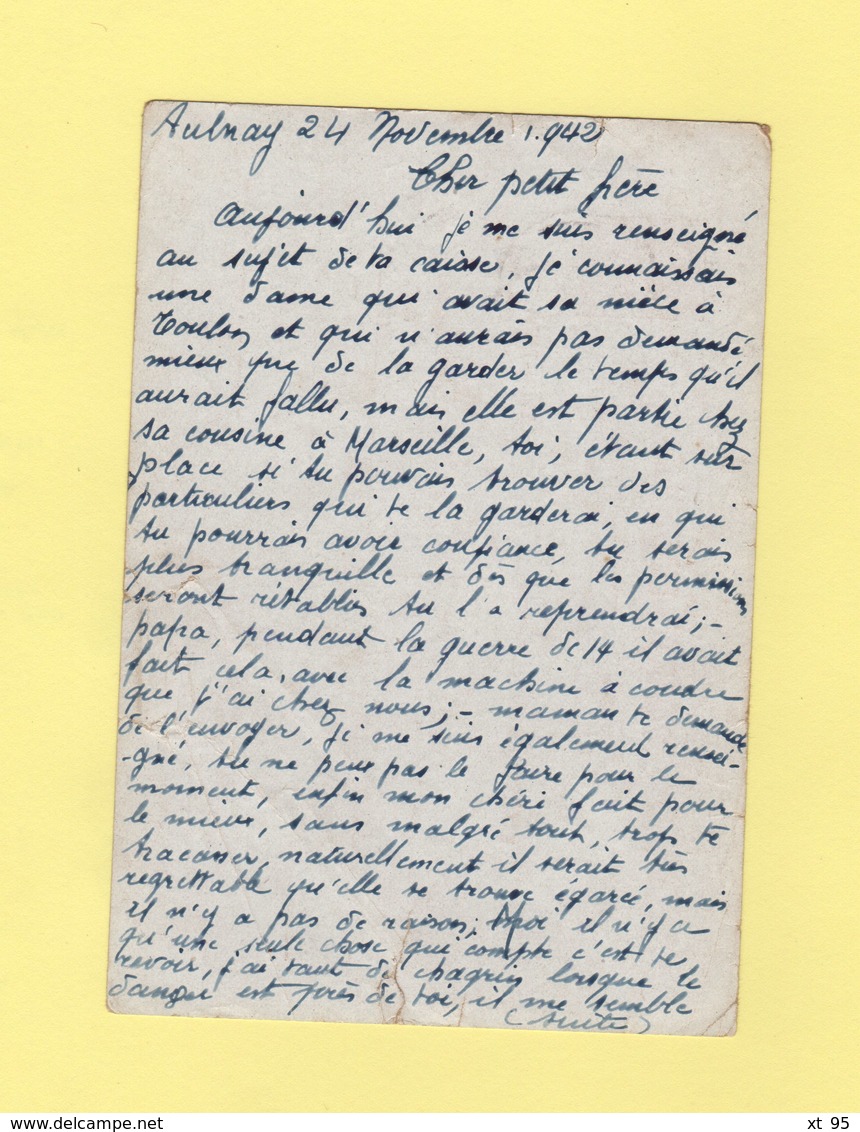 Aulnay 24 Novembre 1.942
Cher petit frère
Aujourd'hui je me suis renseigné
au sujet de ta caisse, je connaissais
une dame qui avait sa nièce à
Toulon et qui n'aurais pas demandé
mieux que de la garder le temps qu'il
aurait fallu, mais elle est partie chez
sa cousine à Marseille, toi, étant sur
place si tu pouvais trouver des
particuliers qui te la garderai, en qui
tu pourrais avoir confiance, tu serais
plus tranquille et dès que les permissions
seront rétablies tu l'a reprendrai;-
papa, pendant la guerre de 14 il avait
fait cela, avec la machine à coudre
que j'ai chez nous;- maman te demande
de l'envoyer, je me suis également rensei-
-gné, tu ne peux pas le faire pour le
moment, enfin mon chéri fait pour
le mieux, sans malgré tout, trop te
tracasser, naturellement il serait très
regrettable qu'elle se trouve égarée, mais
il n'y a pas de raison; Moi il n'y a
qu'une seule chose qui compte c'est te
revoir, j'ai tant de chagrin lorsque le
danger est près de toi, il me semble
(suite)
xt 95